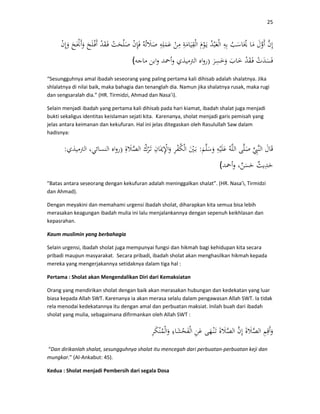 25
إِنَّ أَوَّلَ مَا يُحَاسَبُ بِهِ الْعَبْدُ يَوْمَ الْقِيَامَةِ مِنْ عَمَلِهِ صَلَاتُهُ فَإِنْ صَلُحَتْ فَقَدْ أَفْلَحَ وَأَنْجَحَ وَإِنْ
فَسَدَتْ فَقَدْ خَابَ وَخَسِرَ (رواه الترميذي وأحمد وابن ماجه)
“Sesungguhnya amal ibadah seseorang yang paling pertama kali dihisab adalah shalatnya. Jika
shlalatnya di nilai baik, maka bahagia dan tenanglah dia. Namun jika shalatnya rusak, maka rugi
dan sengsaralah dia.” (HR. Tirmidzi, Ahmad dan Nasa’i).
Selain menjadi ibadah yang pertama kali dihisab pada hari kiamat, ibadah shalat juga menjadi
bukti sekaligus identitas keislaman sejati kita. Karenanya, sholat menjadi garis pemisah yang
jelas antara keimanan dan kekufuran. Hal ini jelas ditegaskan oleh Rasulullah Saw dalam
hadisnya:
قَالَ النَّبِيُّ صَلَّى اللَّهُ عَلَيْهِ وَسَلَّمَ: بَيْنَ الْكُفْرِ وَالْإِيمَانِ تَرْكُ الصَّلَاةِ (رواه النسائي، الترميذي:
حَدِيثٌ حَسَنٌ، وأحمد)
“Batas antara seseorang dengan kekufuran adalah meninggalkan shalat”. (HR. Nasa’i, Tirmidzi
dan Ahmad).
Dengan meyakini dan memahami urgensi ibadah sholat, diharapkan kita semua bisa lebih
merasakan keagungan ibadah mulia ini lalu menjalankannya dengan sepenuh keikhlasan dan
kepasrahan.
Kaum muslimin yang berbahagia
Selain urgensi, ibadah sholat juga mempunyai fungsi dan hikmah bagi kehidupan kita secara
pribadi maupun masyarakat. Secara pribadi, ibadah sholat akan menghasilkan hikmah kepada
mereka yang mengerjakannya setidaknya dalam tiga hal :
Pertama : Sholat akan Mengendalikan Diri dari Kemaksiatan
Orang yang mendirikan sholat dengan baik akan merasakan hubungan dan kedekatan yang luar
biasa kepada Allah SWT. Karenanya ia akan merasa selalu dalam pengawasan Allah SWT. Ia tidak
rela menodai kedekatannya itu dengan amal dan perbuatan maksiat. Inilah buah dari ibadah
sholat yang mulia, sebagaimana difirmankan oleh Allah SWT :
وَأَقِمِ الصَّلَاةَ إِنَّ الصَّلَاةَ تَنْهَى عَنِ الْفَحْشَاءِ وَالْمُنْكَرِ
“Dan dirikanlah shalat, sesungguhnya sholat itu mencegah dari perbuatan-perbuatan keji dan
mungkar.” (Al-Ankabut: 45).
Kedua : Sholat menjadi Pembersih dari segala Dosa